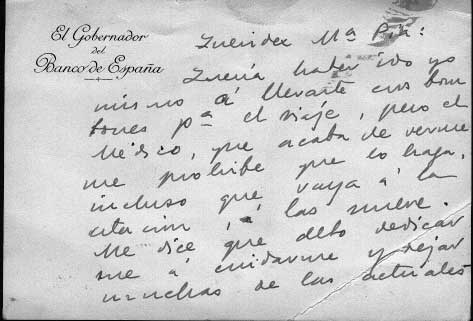 El Gobernador
del
Banco de España
Querida Mª Pía:
Quería haber ido yo
mismo á llevarte los bom
bones pª el viaje, pero el
Médico, que acaba de verme
me prohibe que lo haga,
incluso que vaya á la
estación, á las nueve.
Me dice que debo dedicar
me á cuidarme y dejar
muchas de las actuales